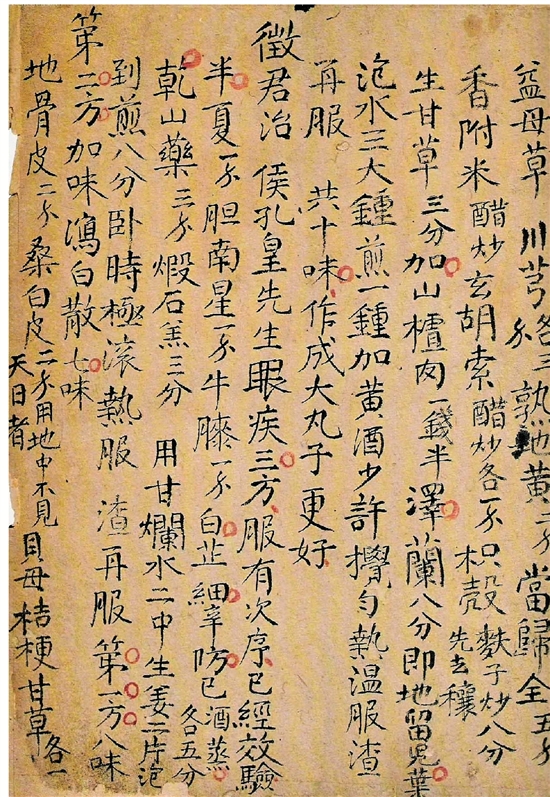 益母草 川芎各三分 熟地黄二分 當歸全五分
香附米醋炒玄胡索醋炒各一分枳殼麩子炒八分先去穰
生甘草三分加山楂肉一錢半澤蘭八分即地留兒葉
泡水三大鍾煎一鍾加黄酒少許攪勻熱温服渣
再服 共十味作成大丸子更好
徵君治 侯孔皇先生眼疾三方服有次序已經效驗
半夏一分胆南星一分牛膝一分白芷細辛防已酒蒸各五分
乾山藥三分煅石羔三分 用甘爛水二中生姜二片泡
到煎八分卧時極滚熱服渣再服第一方八味
第二方加味瀉白散七味
地骨皮二分桑白皮二分用地中不見天日者貝母桔梗甘草各一